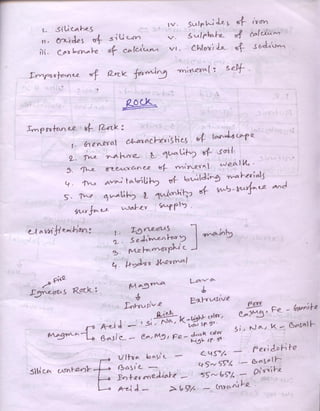 i. silicates iv. Sulphides of iron
ii. Oxides of silicon v. Sulphate of calcium
iii. Carbonate of calcium vi. Chloride of sodium
Importance of Rock forming mineral: self
ROCK
Importance of Rock:
1. General characteristics of landscape
2. The nature & quality of soil
3. The occurance of mineral wealth
4. The availability of building materials
5. The quality & quantity of sub-surface and
surface water supply
classification: 1. Igneous
2. Sedimentary mainly
3. Metamorphic
4. Hydro thermal
Fire
Igneous Rock: Magma Lava
Intrusive Extrusive
Rich Poor
Magma Acid - Si, Na, K - light color, low sp. gr. Ca, Mg, Fe - Granite
Basic - Ca, Mg, Fe - dark color high sp. gr. Si, Na, K - Basalt
Silica content Ultra basic - <45% - Peridotite
Basic - 45-55% - Basalt
Intermediate - 55-65% - Diorite
Acid - >65% - Granite